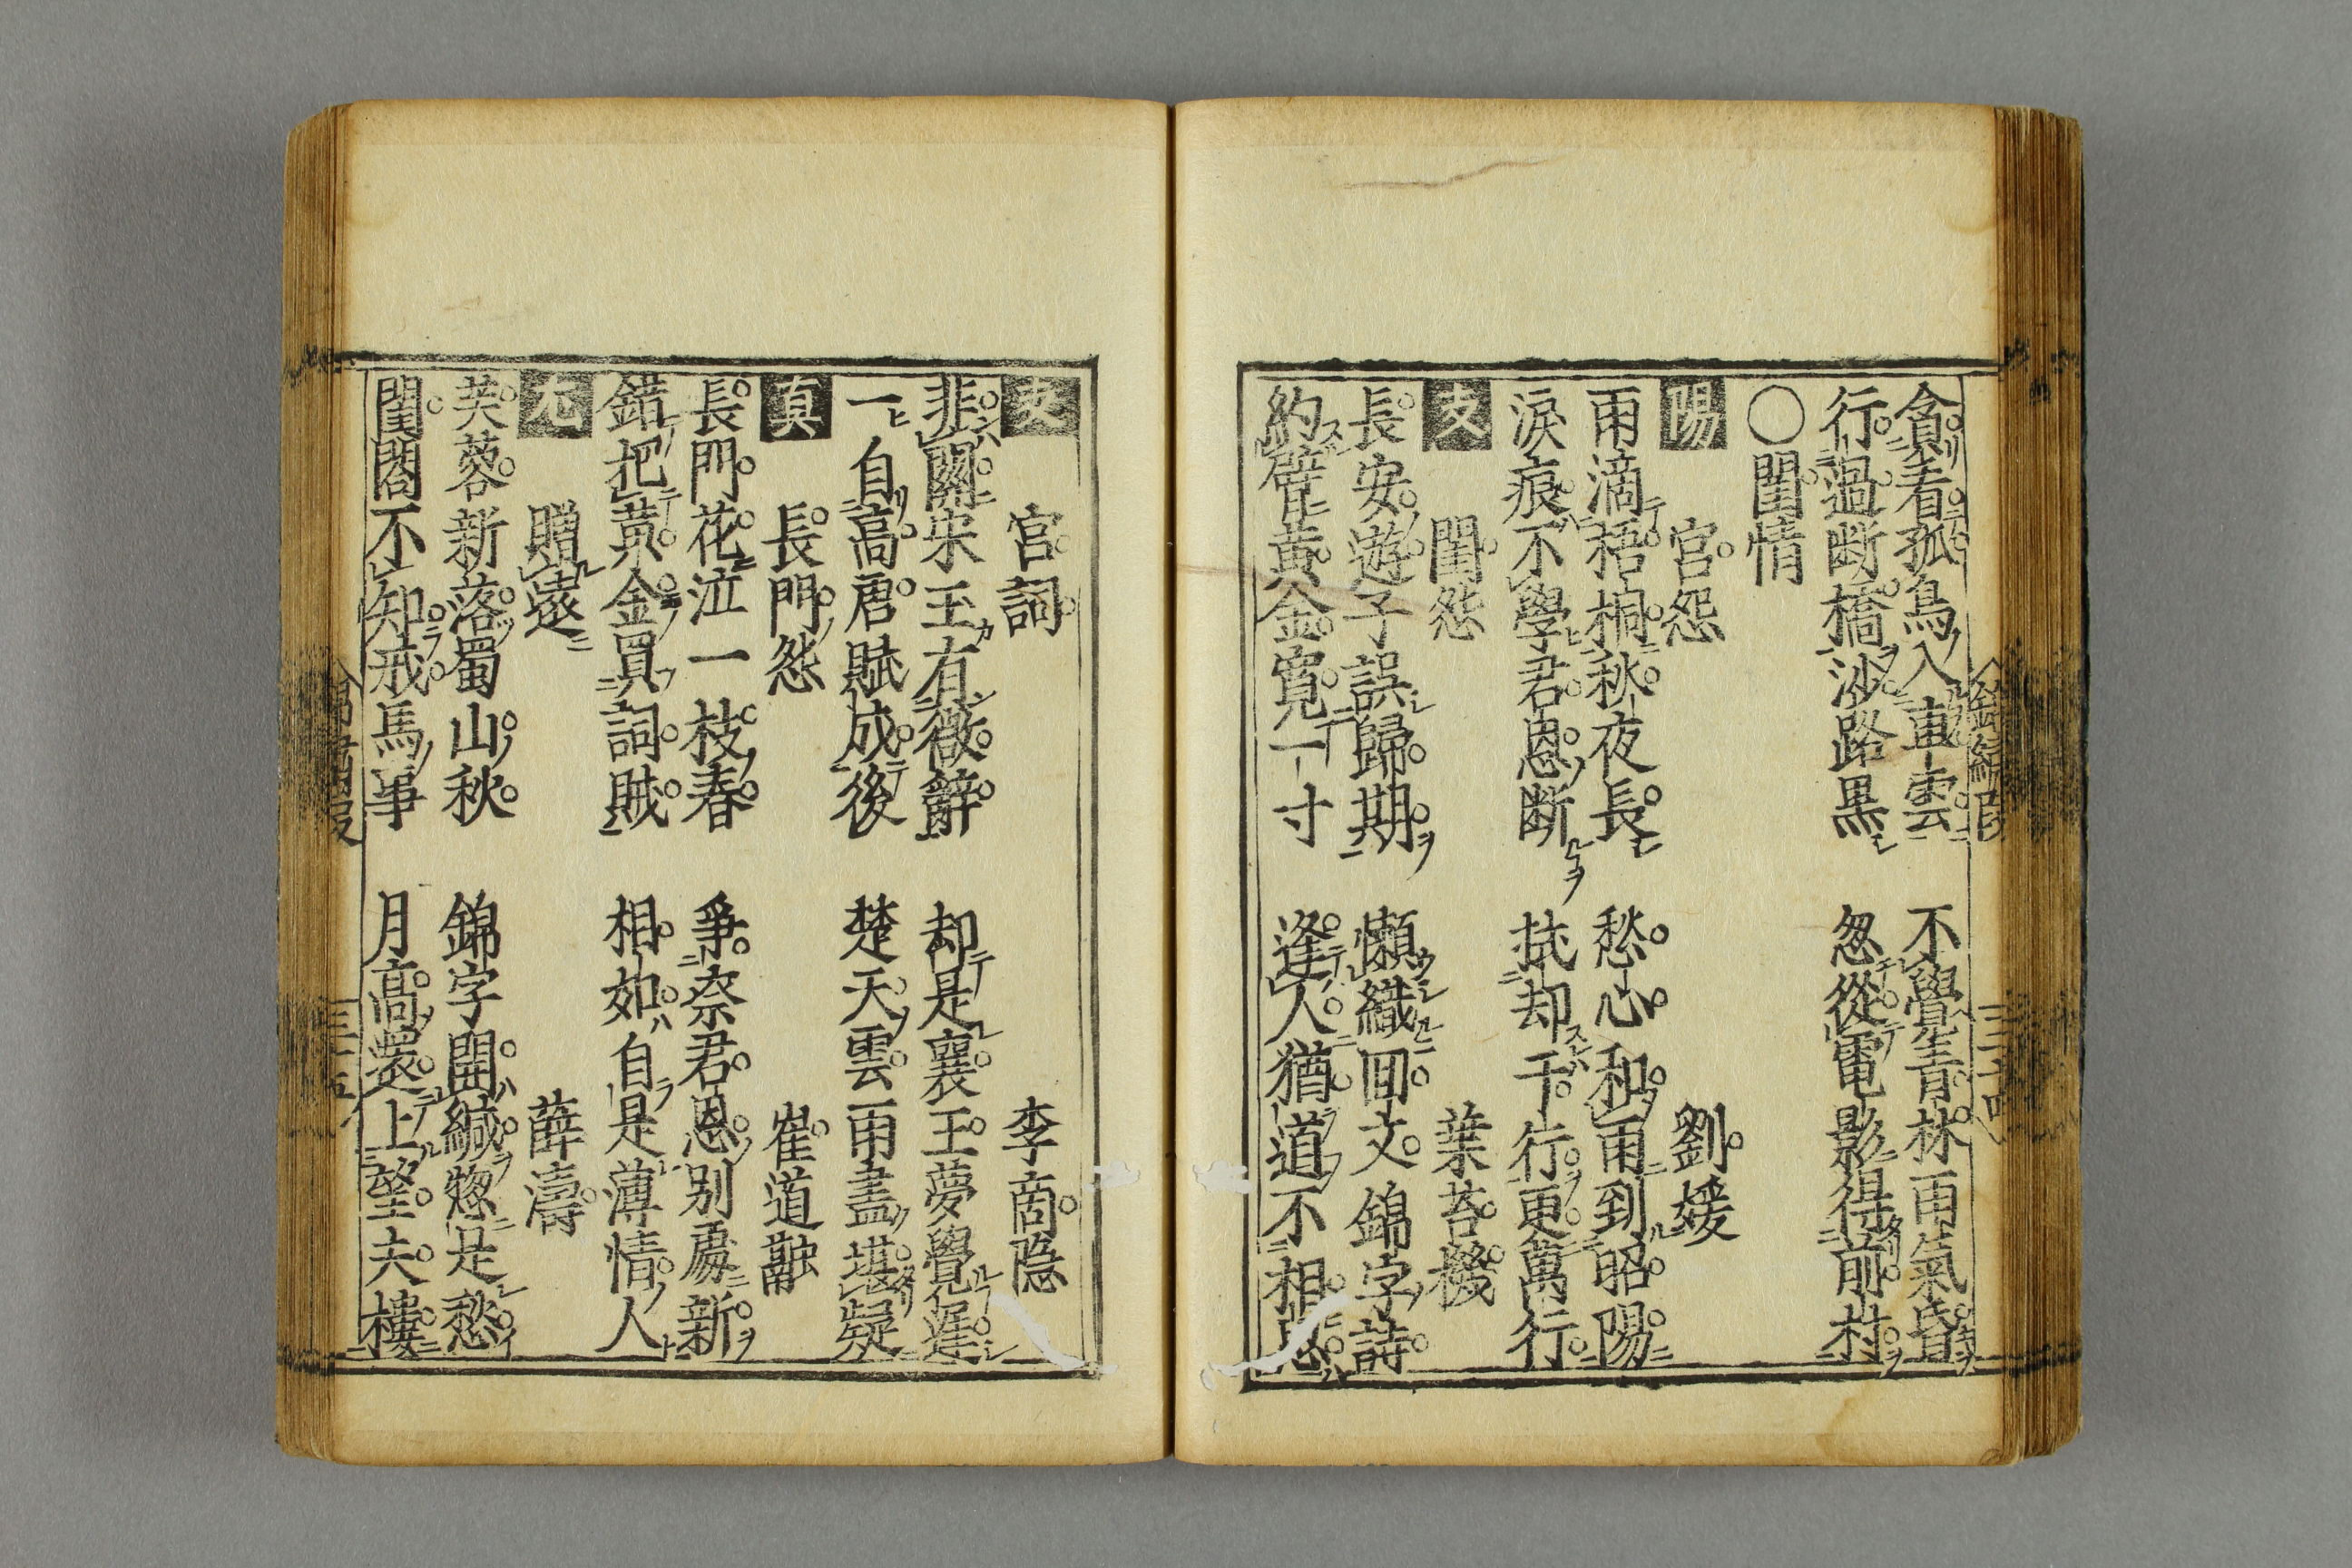 貪看孤鳥入車雲　不覺青林雨氣昏
行過断橋沙路黒　忽從電影得前村
○閨情
陽　宮怨　劉媛
雨滴梧桐秋夜長　愁心和雨到昭陽
淚痕不學君恩断　拭却千行更萬行
支　閨怨　葉苔磯
長安遊子誤歸期　懶織回文錦字詩
約臂黄金寛一寸　逢人猶道不相思
支　宮詞　李商隐
非關宋玉有微辭　却是襄王夢覺遲
一自高唐賦成後　楚天雲雨盡堪疑
真　長門怨　崔道融
長門花泣一枝春　爭奈君恩别處新
錯把黄金買詞賦　相如自是薄情人
尤　贈遠　薛濤
芙蓉新落蜀山秋　錦字開緘惣是愁
閨閤不知戎馬事　月高還上望夫樓